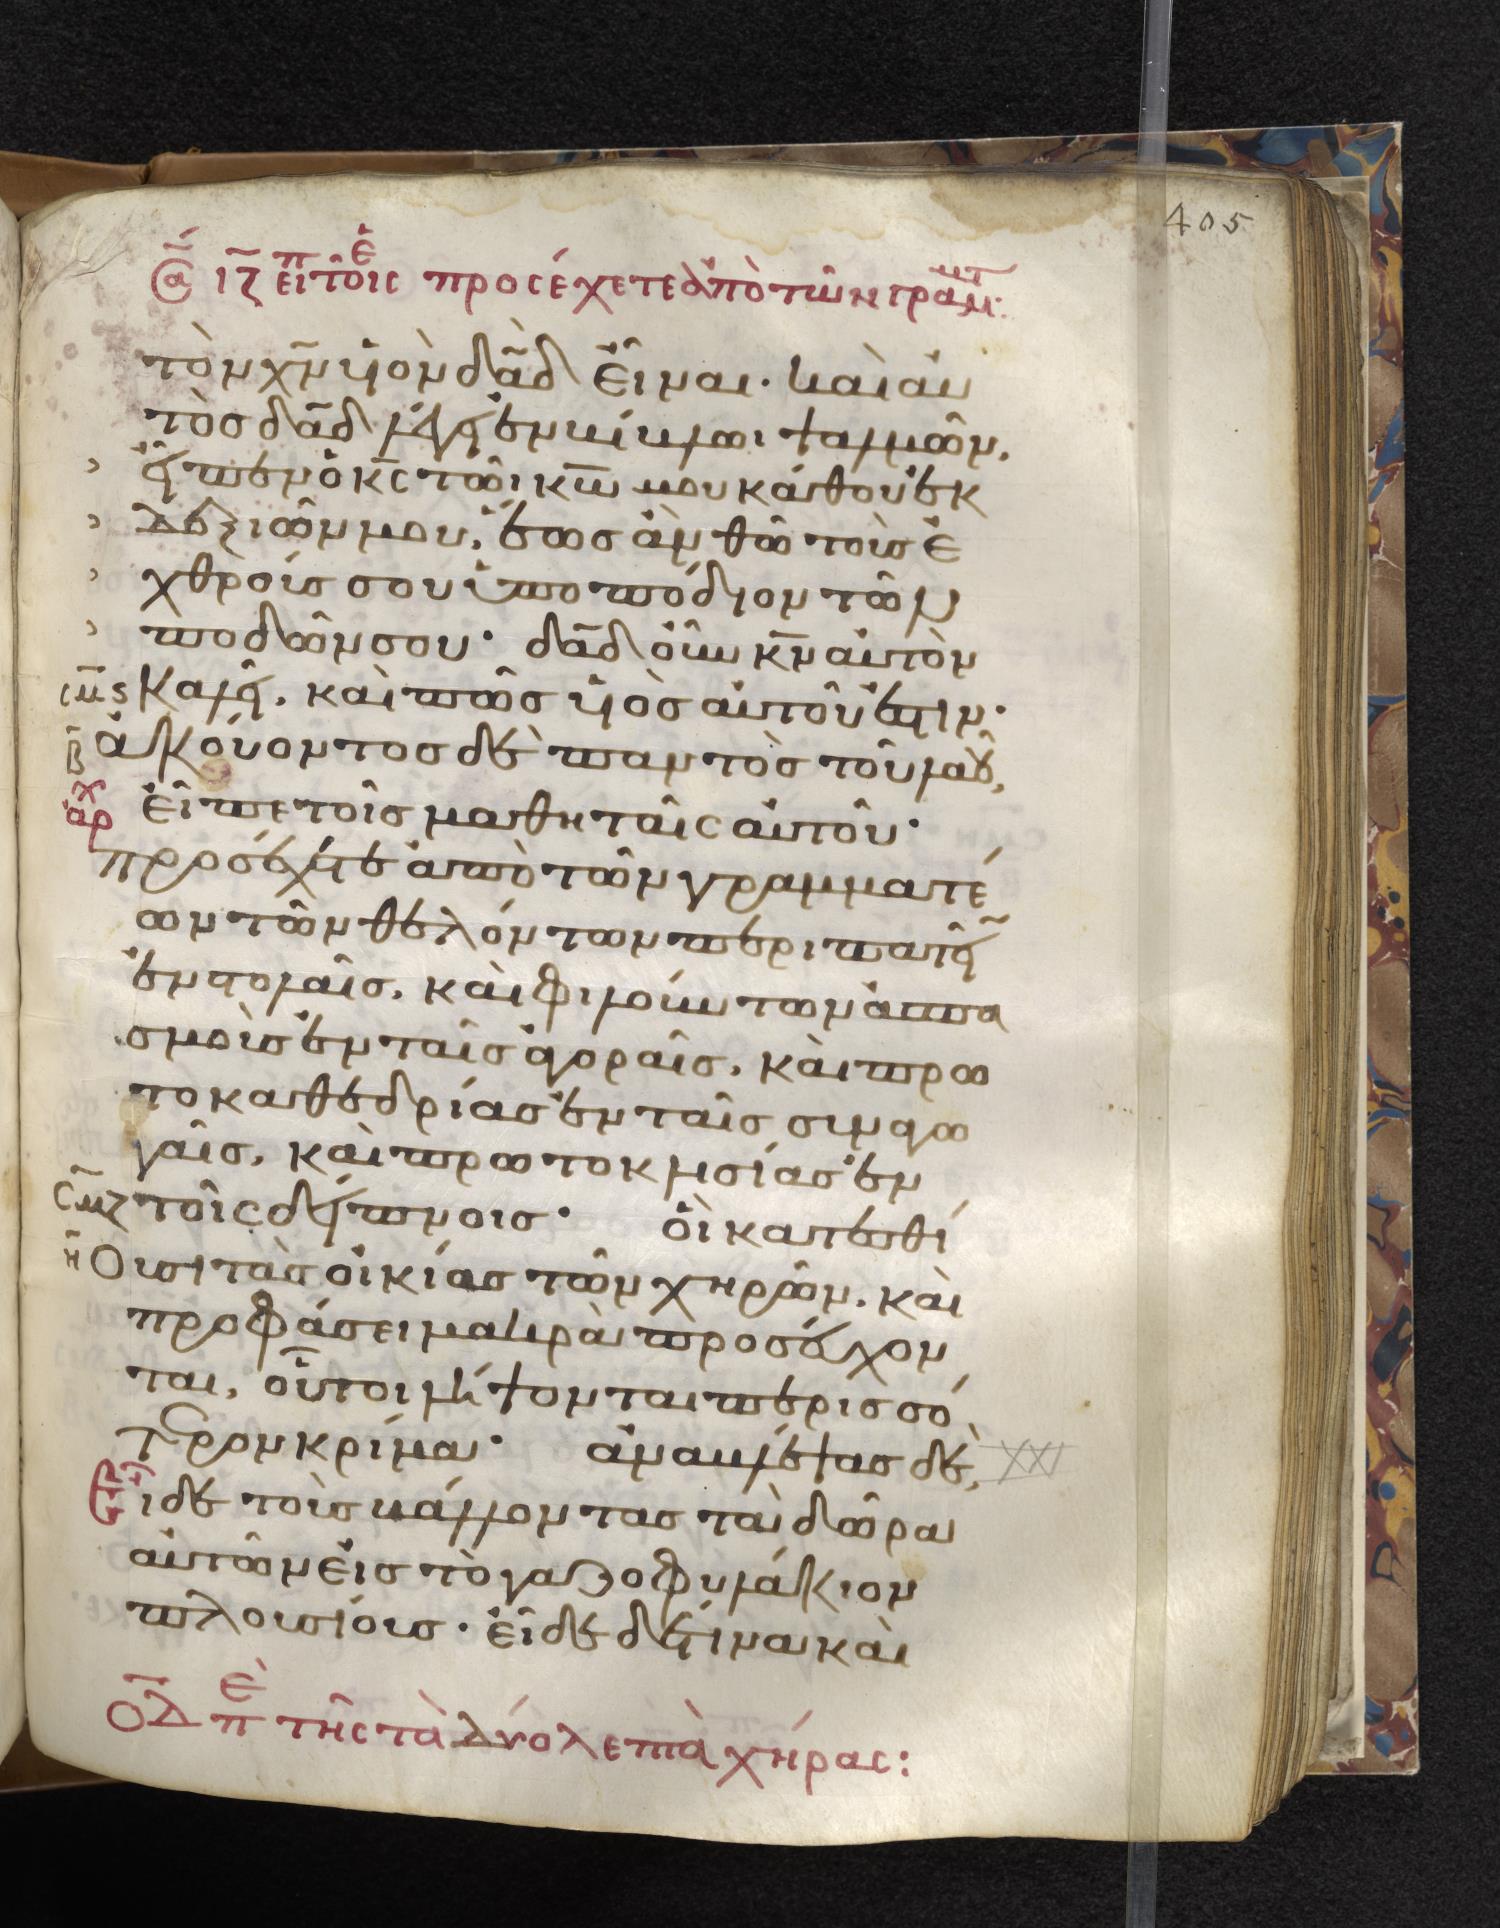 405
α ιζ ειπ τοις προσέχετε ἀπὸ τῶν γραμμτ:
τὸν χ̅ν υἱὸν δ̅α̅δ εἶναι· καὶ αὐ
τὸς δ̅α̅δ λέγει ἐν βίβλωι ψαλμῶν,
εἶπεν ὁ κ̅ς τῶι κ̅ω μου κάθου ἐκ
δεξιῶν μου, ἕως ἂν θῶ τοὺς ἐ
χθρούς σου ὑποπόδιον τῶν
ποδῶν σου· δ̅α̅δ οὖν κ̅ν αὐτὸν
ς̅μ̅ς καλεῖ, καὶ πῶς υἱὸς αὐτοῦ ἐστιν·
β ἀκούοντος δὲ παντὸς τοῦ λαοῦ,
ἀρχ εἶπε τοῖς μαθηταῖς αὐτοῦ·
προσέχετε ἀπὸ τῶν γραμματέ
ων τῶν θελόντων περιπατεῖν
ἐν στολαῖς, καὶ φιλούντων ἀσπα
σμοὺς ἐν ταῖς ἀγοραῖς, καὶ πρω
τοκαθεδρίας ἐν ταῖς συναγω
γαῖς, καὶ πρωτοκλισίας ἐν
ς̅μ̅ζ τοῖς δείπνοις· οἳ κατεσθί
η ουσι τὰς οἰκίας τῶν χηρῶν, καὶ
προφάσει μακρὰ προσεύχον
ται, οὗτοι λήψονται περισσό
τερον κρίμα· ἀναβλέψας δὲ, XXI
εἶδε τοὺς βάλλοντας τὰ δῶρα
αὐτῶν εἰς τὸ γαζοφυλάκιον
πλουσίους· εἶδε δέ τινα καὶ
ο̅δ̅ πε τῆς τὰ δύο λεπτὰ χήρας: